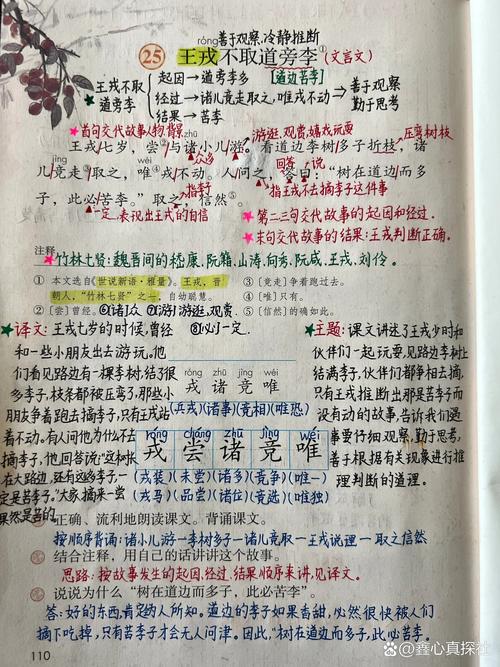 善于观察,冷静推断
róng
25 王戎不取道旁李① (文言文)
王戎不取道旁李
起因→道旁李多 [道边苦李]
经过→诸儿竞走取之,唯戎不动→善于观察 勤于思考
结果→苦李
★首句交代故事人物,背景
游逛,观赏,嬉戏玩耍
压弯树枝
zhū
王戎七岁,尝②与诸小儿游。看道边李树多子折枝,诸
众多
回答 说
jìng wéi
儿竞走③取之,唯④戎不动。人问之,答曰:“树在道边而多
指李子
指王戎不去摘李子这件事
子,此必苦李。”取之,信然⑤。
一定,表现出王戎的自信
★第二三句交代故事的起因和经过.
★末句交代故事的结果:王戎判断正确.
注释
★竹林七贤:魏晋间的嵇康,阮籍,山涛,向秀,阮咸,王戎,刘伶.
① 本文选自《世说新语·雅量》。王戎,晋朝人,“竹林七贤”之一,自幼聪慧。
② 〔尝〕曾经。
③ 〔竞走〕争着跑过去。
④ 〔唯〕只有。
⑤ 〔信然〕的确如此。
⑥诸:众 ⑦游:游逛,观赏.
⑧必:一定.
★译文:王戎七岁的时候,曾经
和一些小朋友出去游玩。他
们看见路边有一棵李树,结了很
多李子,枝条都被压弯了,那些小
朋友争着跑去摘李子,只有王戎站
着不动。有人问他为什么不去
摘李子,他回答说:“这树长
在大路边,还有这多李子,一
定是苦李子。”大家摘来一尝
果然是苦的。
róng zhū jìng wéi
戎诸竞唯
(兵戎)(诸事)(竞相)(唯恐)
róng cháng zhū jìng wéi
戎尝诸竞唯
(戎装)(未尝)(诸多)(竞争)(唯一)
(戎马)(品尝)(诸位)(竞选)(唯独)
★主题:课文讲述了王戎少时和
伙伴们一起玩耍,见路边李树上
结满李子,伙伴们都争相去摘,
只有王戎推断出那是苦李而
没有动的故事,告诉我们遇
事要仔细观察,勤于思考,
善于根据有关现象进行推
理判断的道理.
正确、流利地朗读课文。背诵课文。
按顺序背诵:诸小儿游—李树多子—诸儿竞取—王戎说理—取之信然
结合注释,用自己的话讲讲这个故事。
思路:按故事发生的起因,经过,结果顺序来讲,见译文.
说说为什么“树在道边而多子,此必苦李。”
答:好的东西,肯定为人所知。道边的李子如果香甜,必然很快被人们
摘下吃掉,只有苦李子才会无人问津。因此,“树在道边而多子,此必苦李.
110
@鑫心真探社